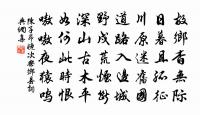 故鄉杳無際
日暮且孤征
川原迷舊國
道路入邊城
野戍荒煙斷
深山古木平
如何此時恨
噭噭夜猿鳴
陳子昂晚次樂鄉縣詞
典網